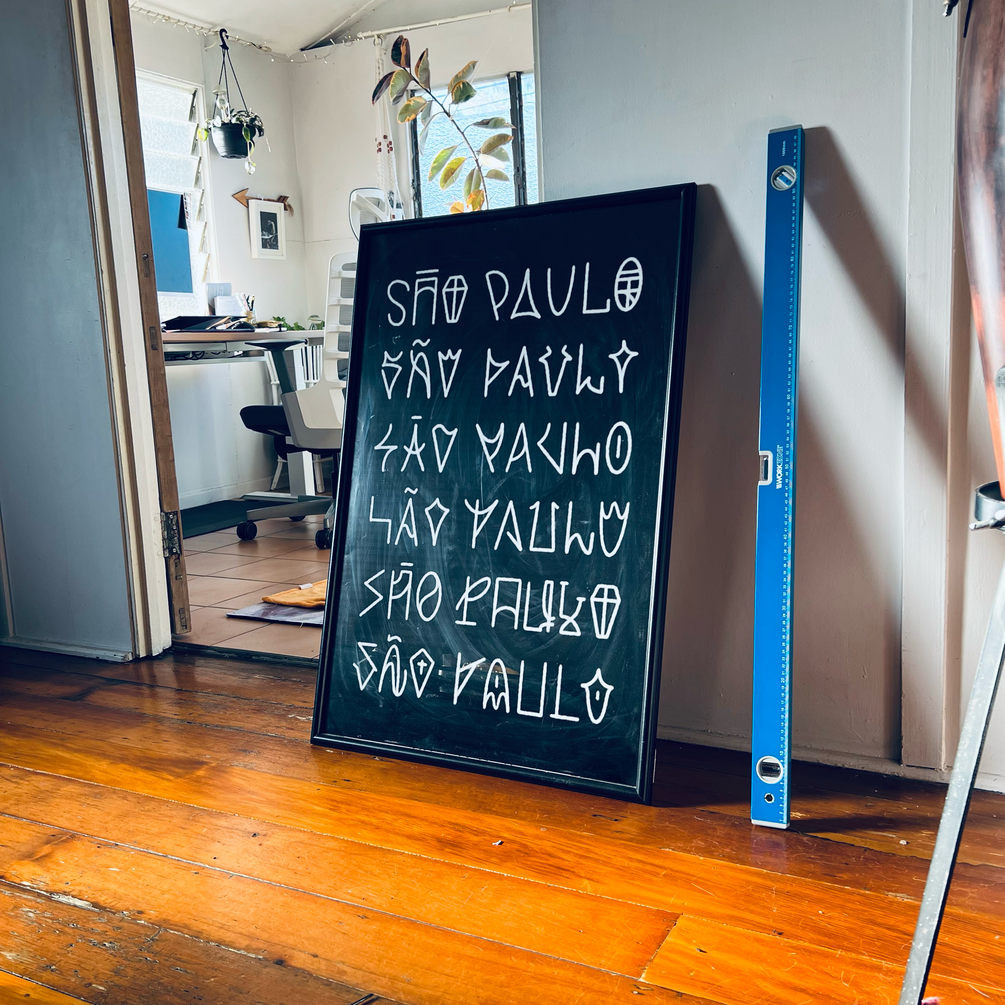 SÃO PAULO
SÃO PAULO
SÃO PAULO
SÃO PAULO
SÃO PAULO
SÃO PAULO